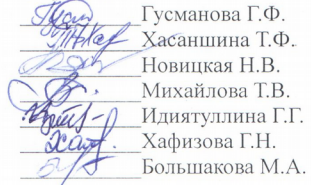 Гусманова Г.Ф.
Хасаншина Т.Ф.
Новицкая Н.В.
Михайлова Т.В.
Идиятуллина Г.Г.
Хафизова Г.Н.
Большакова М.А.